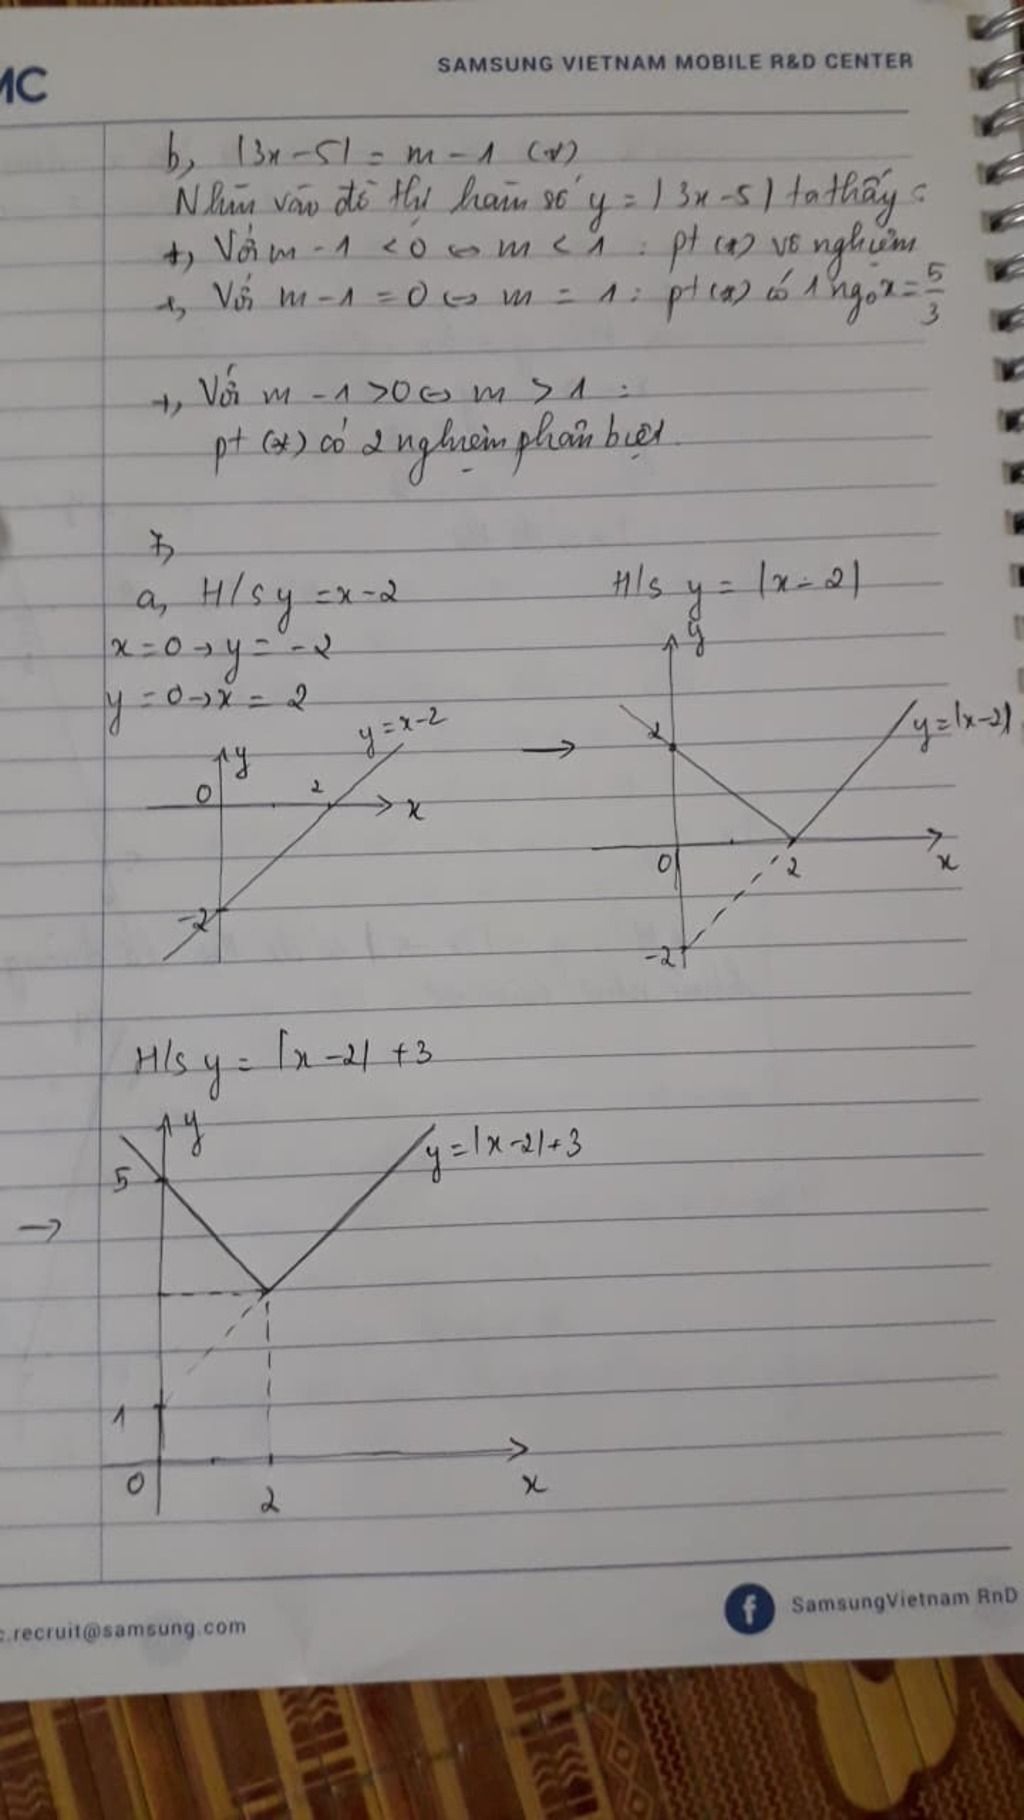 MC
SAMSUNG VIETNAM MOBILE R&D CENTER
b, |3x-5| = m - 1 (*)
Nhìn vào đồ thị hàm số y = |3x-5| ta thấy :
+, Với m - 1 < 0 ⇔ m < 1 : pt (*) vô nghiệm
+, Với m - 1 = 0 ⇔ m = 1 : pt (*) có 1 ngo x = 5/3
+, Với m - 1 > 0 ⇔ m > 1 :
pt (*) có 2 nghiệm phân biệt.
7,
a, H/s y = x-2
x = 0 → y = -2
y = 0 → x = 2
y = x-2
y
0
2
x
-2
→
H/s y = |x - 2|
y
2
y = |x-2|
0
2
x
-2
H/s y = |x-2| + 3
y
5
y = |x-2| + 3
→
1
0
2
x
c.recruit@samsung.com
f
SamsungVietnam RnD